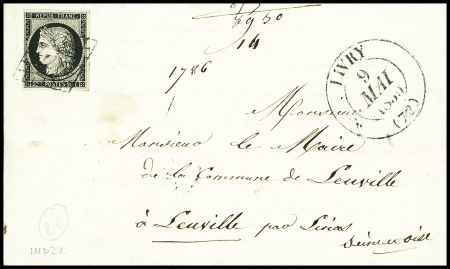 REPUB. FRANC.
20 POSTES 20
29 50
14
1786
LIVRY
9
MAI
(72)
Monsieur
Monsieur le Maire
de la Commune de Leuville
à Leuville par Linas
Seine et Oise
22
IND22